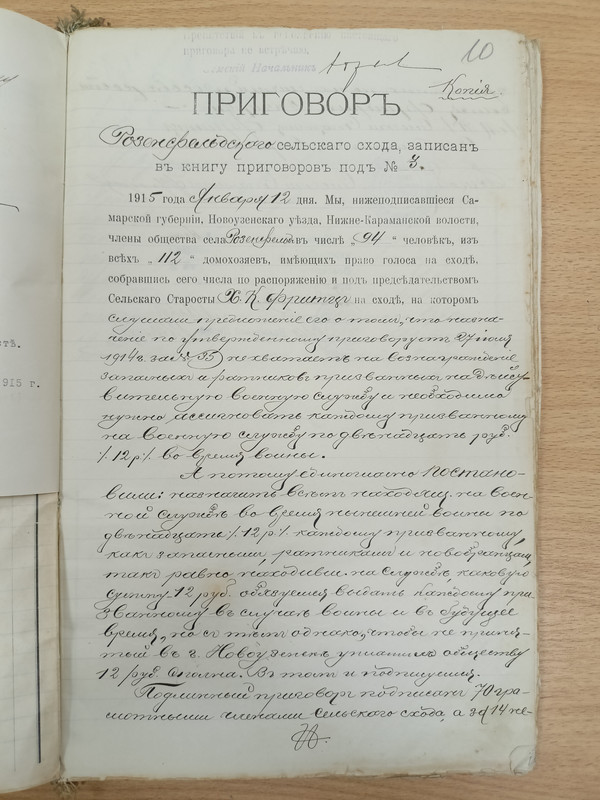 10
Копія.
ПРИГОВОРЪ
Розенфельдского сельскаго схода, записанъ
въ книгу приговоровъ подъ № 3.
1915 года Января 12 дня. Мы, нижеподписавшіеся Са-
марской губерніи, Новоузенскаго уѣзда, Нижне-Караманской волости,
члены общества села Розенфельдъ въ числѣ „94“ человѣкъ, изъ
всѣхъ „112“ домохозяевъ, имѣющихъ право голоса на сходѣ,
собравшись сего числа по распоряженію и подъ предсѣдательствомъ
Сельскаго Старосты Х. К. Фритцъ на сходѣ, на которомъ
слушали предложеніе его о томъ, что назна-
ченіе по утвержденному приговору отъ 27 іюля
1914 г. за № 35 не хватаетъ на вознагражденіе
запасныхъ и ратниковъ призванныхъ на дѣйст-
вительную военную службу и необходимо
нужно ассигновать каждому призванному
на военную службу по двѣнадцать руб.
/:12 р:/ во время войны.
А потому единогласно постано-
вили: назначить всѣмъ находящ. на воен-
ной службѣ во время нынѣшней войны по
двѣнадцать /:12 р:/ каждому призванному,
какъ запаснымъ, ратникамъ и новобранцамъ,
такъ равно находивш. на службѣ, каковую
сумму 12 руб. обязуемся выдать каждому при-
званному въ случаѣ войны и въ будущее
время, но съ тѣмъ однако, чтобы не приня-
тый въ г. Новоузенскѣ уплатилъ обществу
12 руб. Въ томъ и подпишемся.
Подлинный приговоръ подписали 70 гра-
мотными членами сельскаго схода, а за 14 не-